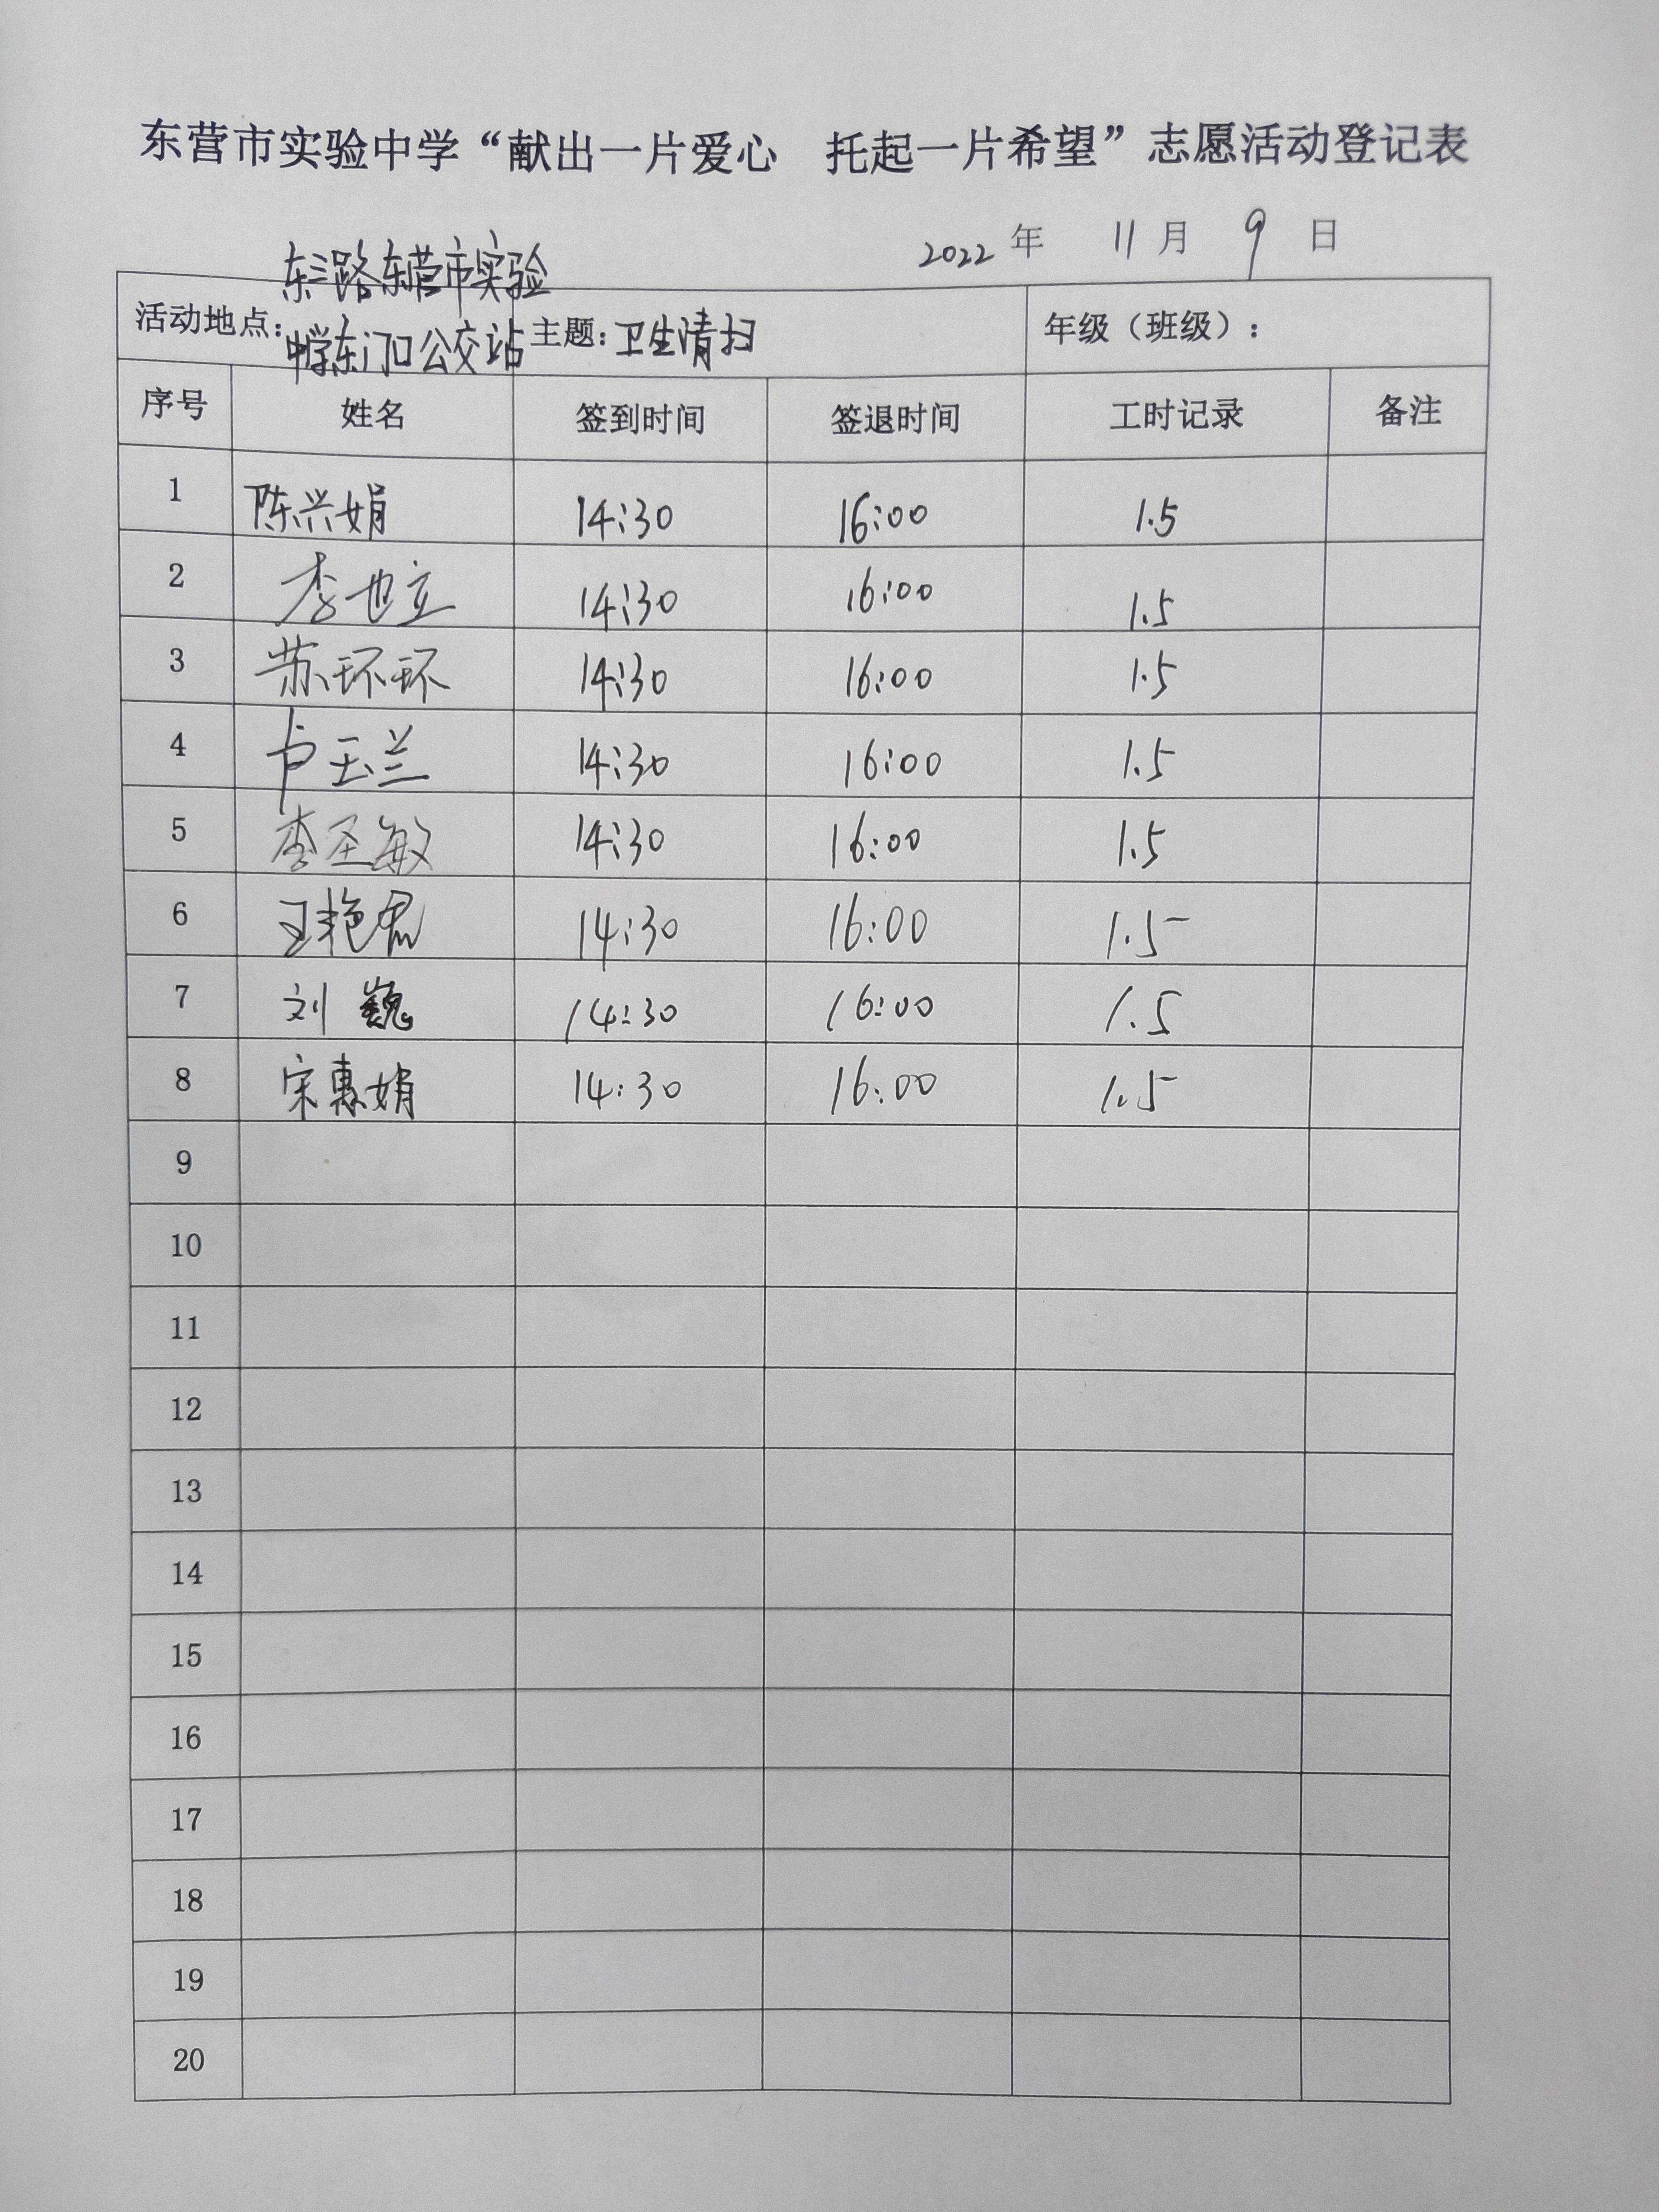 东营市实验中学“献出一片爱心 托起一片希望”志愿活动登记表
2022 年 11 月 9 日
活动地点：东三路东营市实验
中学东门口公交站 主题：卫生清扫 年级（班级）：
序号 姓名 签到时间 签退时间 工时记录 备注
1 陈兴娟 14:30 16:00 1.5
2 李也立 14:30 16:00 1.5
3 苏环环 14:30 16:00 1.5
4 卢玉兰 14:30 16:00 1.5
5 李圣敏 14:30 16:00 1.5
6 王艳君 14:30 16:00 1.5
7 刘巍 14:30 16:00 1.5
8 宋惠娟 14:30 16:00 1.5
9
10
11
12
13
14
15
16
17
18
19
20